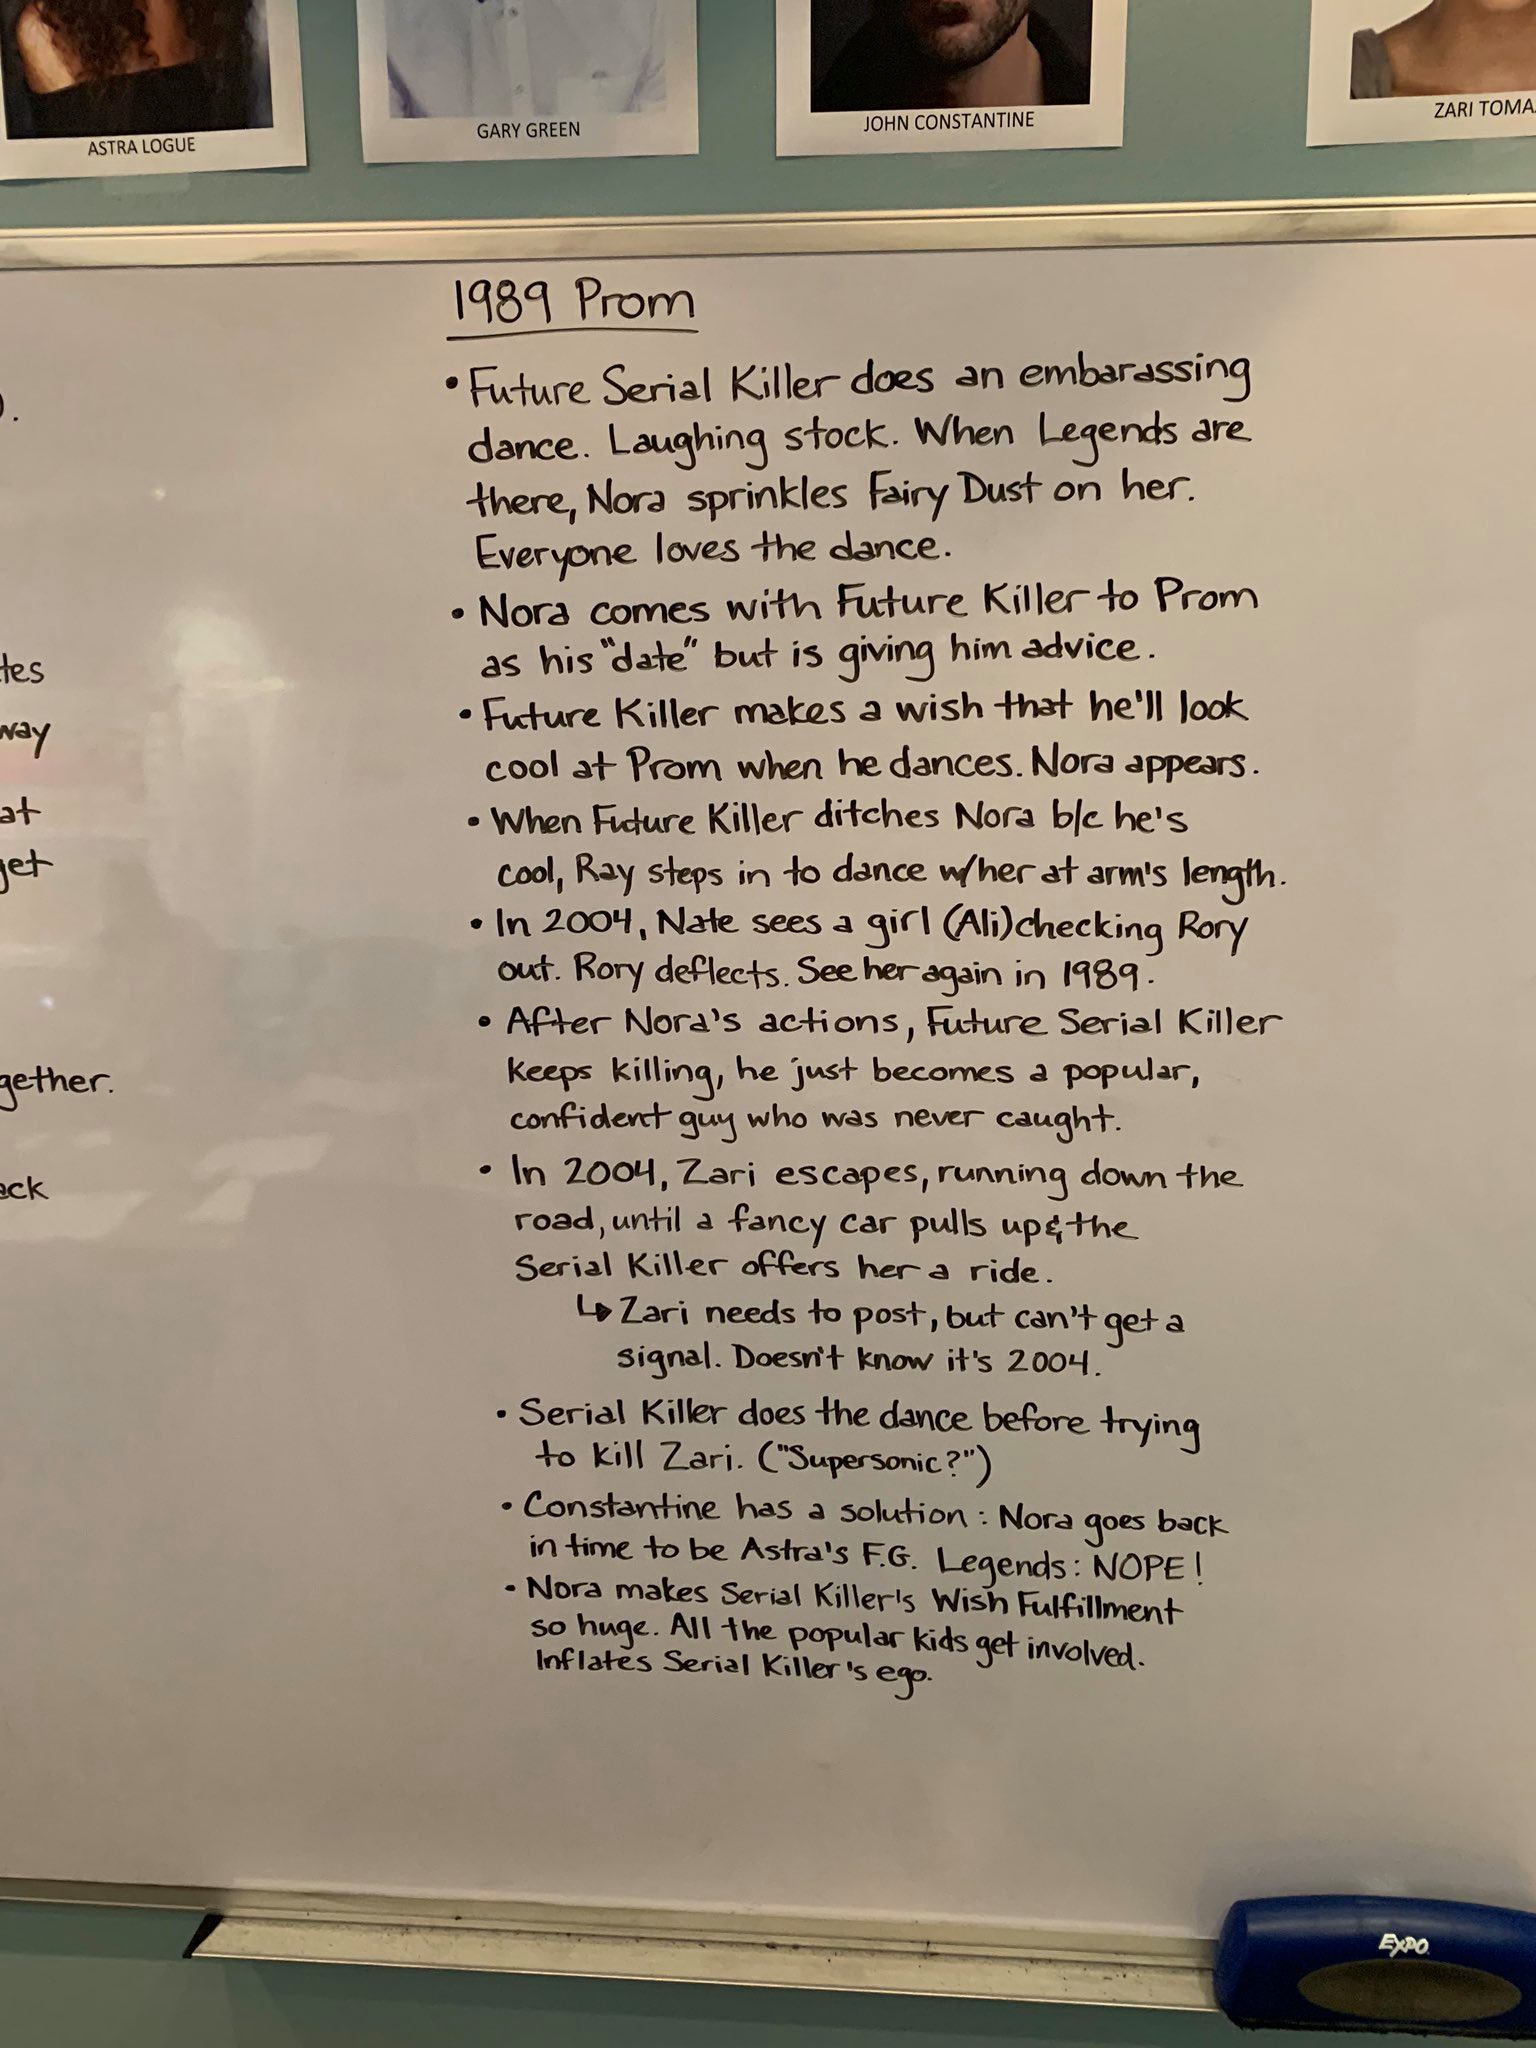 ASTRA LOGUE
GARY GREEN
JOHN CONSTANTINE
ZARI TOMA
1989 Prom
• Future Serial Killer does an embarassing
dance. Laughing stock. When Legends are
there, Nora sprinkles Fairy Dust on her.
Everyone loves the dance.
• Nora comes with Future Killer to Prom
as his "date" but is giving him advice.
• Future Killer makes a wish that he'll look
cool at Prom when he dances. Nora appears.
• When Future Killer ditches Nora b/c he's
cool, Ray steps in to dance w/her at arm's length.
• In 2004, Nate sees a girl (Ali) checking Rory
out. Rory deflects. See her again in 1989.
• After Nora's actions, Future Serial Killer
keeps killing, he just becomes a popular,
confident guy who was never caught.
• In 2004, Zari escapes, running down the
road, until a fancy car pulls up & the
Serial Killer offers her a ride.
↳ Zari needs to post, but can't get a
signal. Doesn't know it's 2004.
• Serial Killer does the dance before trying
to kill Zari. ("Supersonic?")
• Constantine has a solution: Nora goes back
in time to be Astra's F.G. Legends: NOPE!
• Nora makes Serial Killer's Wish Fulfillment
so huge. All the popular kids get involved.
Inflates Serial Killer's ego.
).
tes
way
at
get
gether.
ack
EXPO